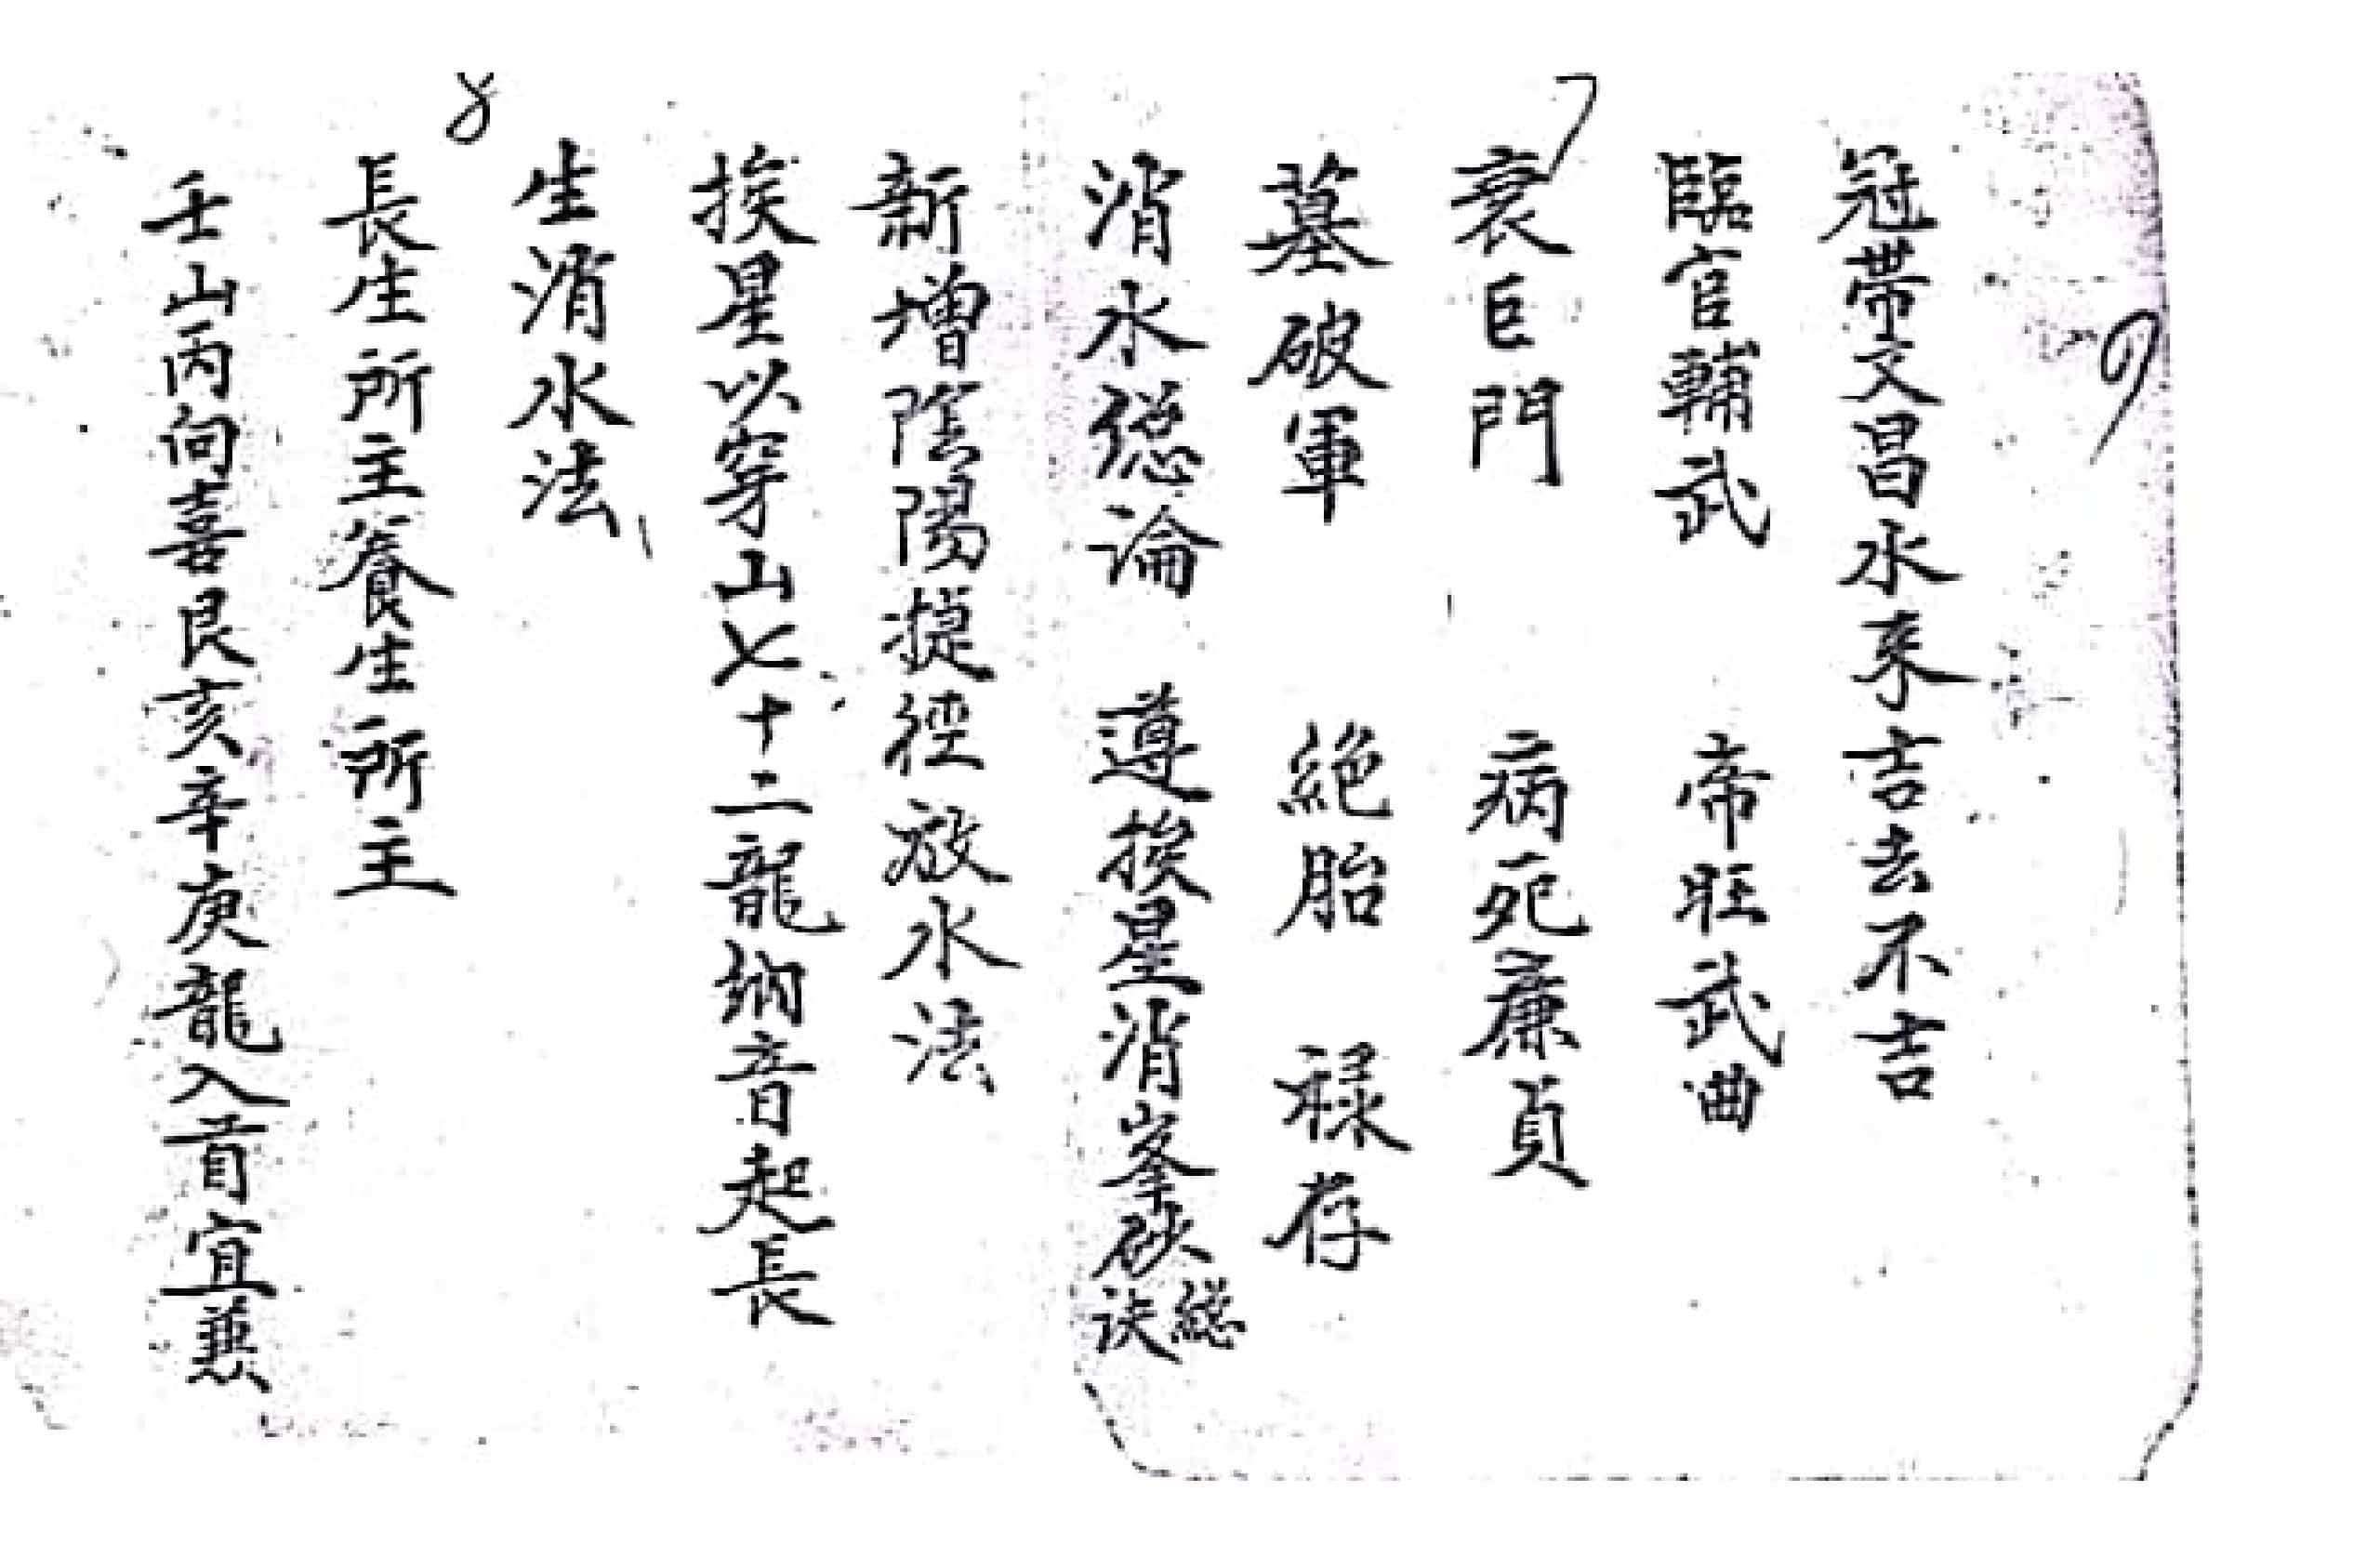 冠帶文昌水来吉去不吉
臨官輔武 帝旺武曲
衰巨門 病死廉貞
墓破軍 絕胎 祿存
消水總論 遵挨星消峯砂總訣
新增陰陽捷徑放水法
挨星以穿山七十二龍納音起長
生消水法
長生所主養生所主
壬山丙向喜艮亥辛庚龍入首宜兼